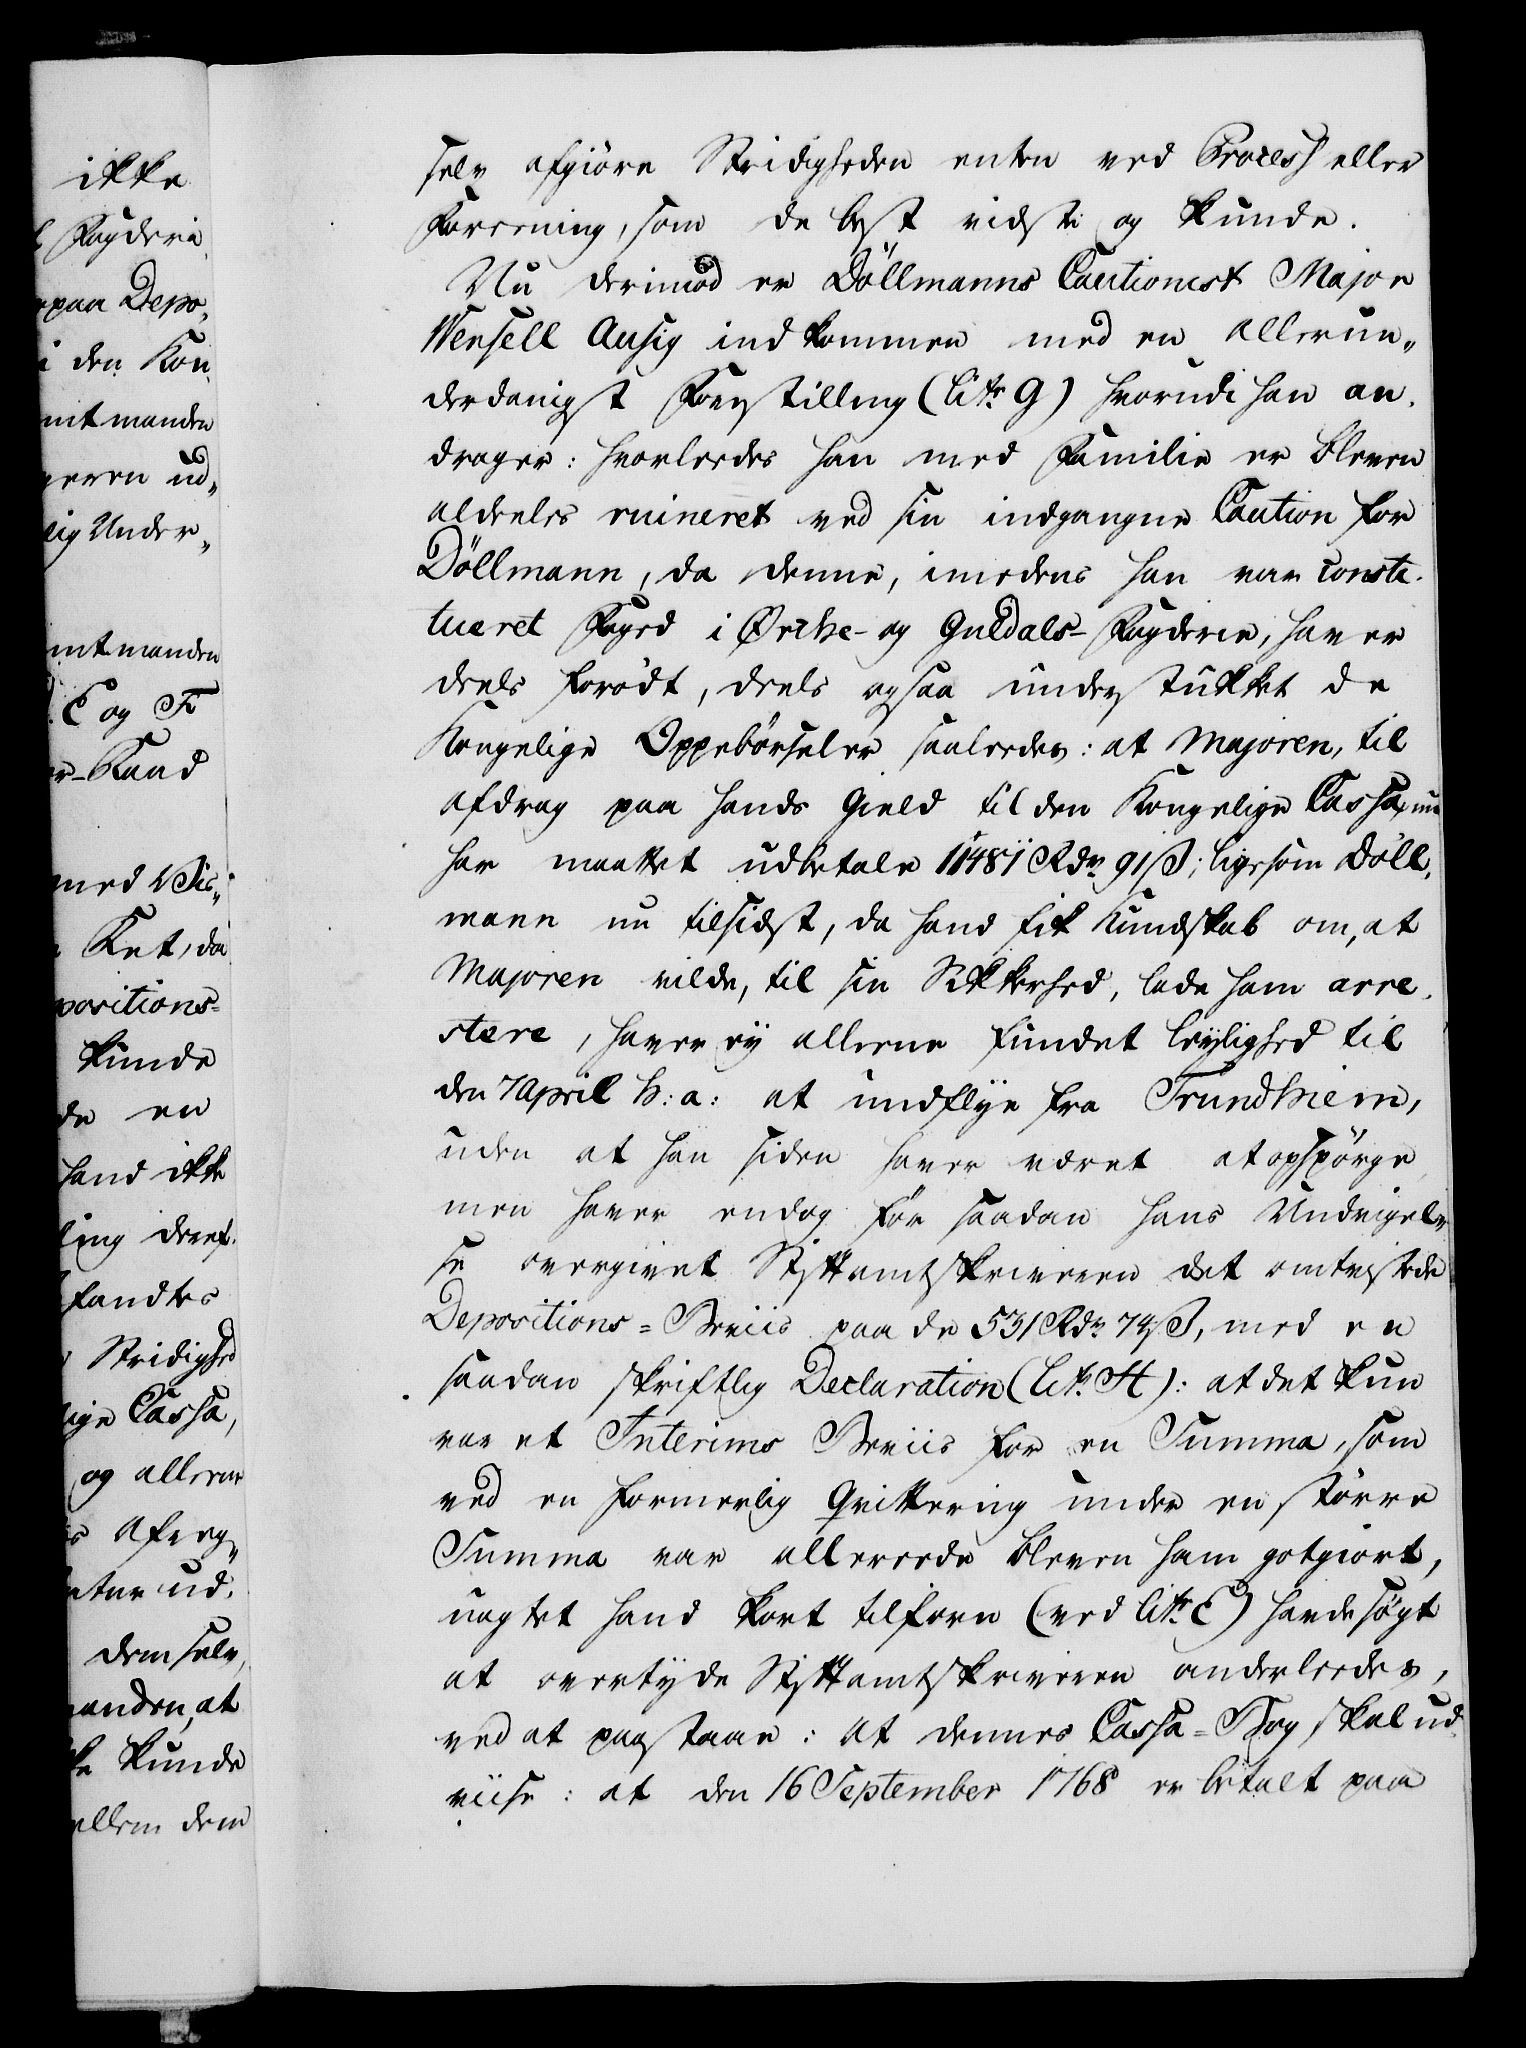 ikke
Fogderie
paa Depo„
i den Kon
mtmanden
geren ud„
lig Under„
mtmanden
E og F
er-Raad
med Vis„
Ret, da
positions=
kunde
de en
hand ikke
ling deraf.
fandtes
Stridighed
lige Cassa,
og allerun
s Afreg„
ud.
dem selv,
anden, at
ke kunde
ellem dem
selv afgiöre Stridigheden enten ved Process eller
Foreening, som de best vidste og kunde.
Nu derimod er Döllmanns Cautionist Major
Wensell Ansig indkommen med en allerun„
derdanigst Forestilling (Litr G) hvorudi han an„
drager: hvorleedes han med Familie er bleven
aldeeles ruineret ved sin indgangne Caution for
Döllmann, da denne, imedens han var consti„
tueret Foged i Örche- og Guldals-Fogderie, haver
deels forödt, deels ogsaa understukket de
Kongelige Oppebörseler saaleedes: at Majoren, til
afdrag paa hands Gield til den Kongelige Cassa, nu
har maattet udbetale 11481 Rdr 91 ß; ligesom Döll„
mann nu tilsidst, da hand fik Kundskab om, at
Majoren vilde, til sin Sikkerhed, lade ham arre„
stere, haver ey alleene fundet leylighed til
den 7 April h: a: at undflye fra Trundhiem,
uden at han siden haver været at opspörge
men haver endog för saadan hans Undvigel„
se overgivet Stiftamtskriveren det omtvistede
Depositions=Beviis paa de 531 Rdr 74 ß, med en
saadan skriftlig Declaration (Litr H): at det kun
var et Interims Beviis for en Summa, som
ved en formerlig Qvittering under en större
Summa var allereede bleven ham gotgiort,
uagtet hand kort tilforn (ved Litr E) havde sögt
at overtyde Stiftamtskriveren anderleedes,
ved at paastaae: at dennes Cassa=Bog skal ud„
viise: at den 16 September 1768 er betalt paa